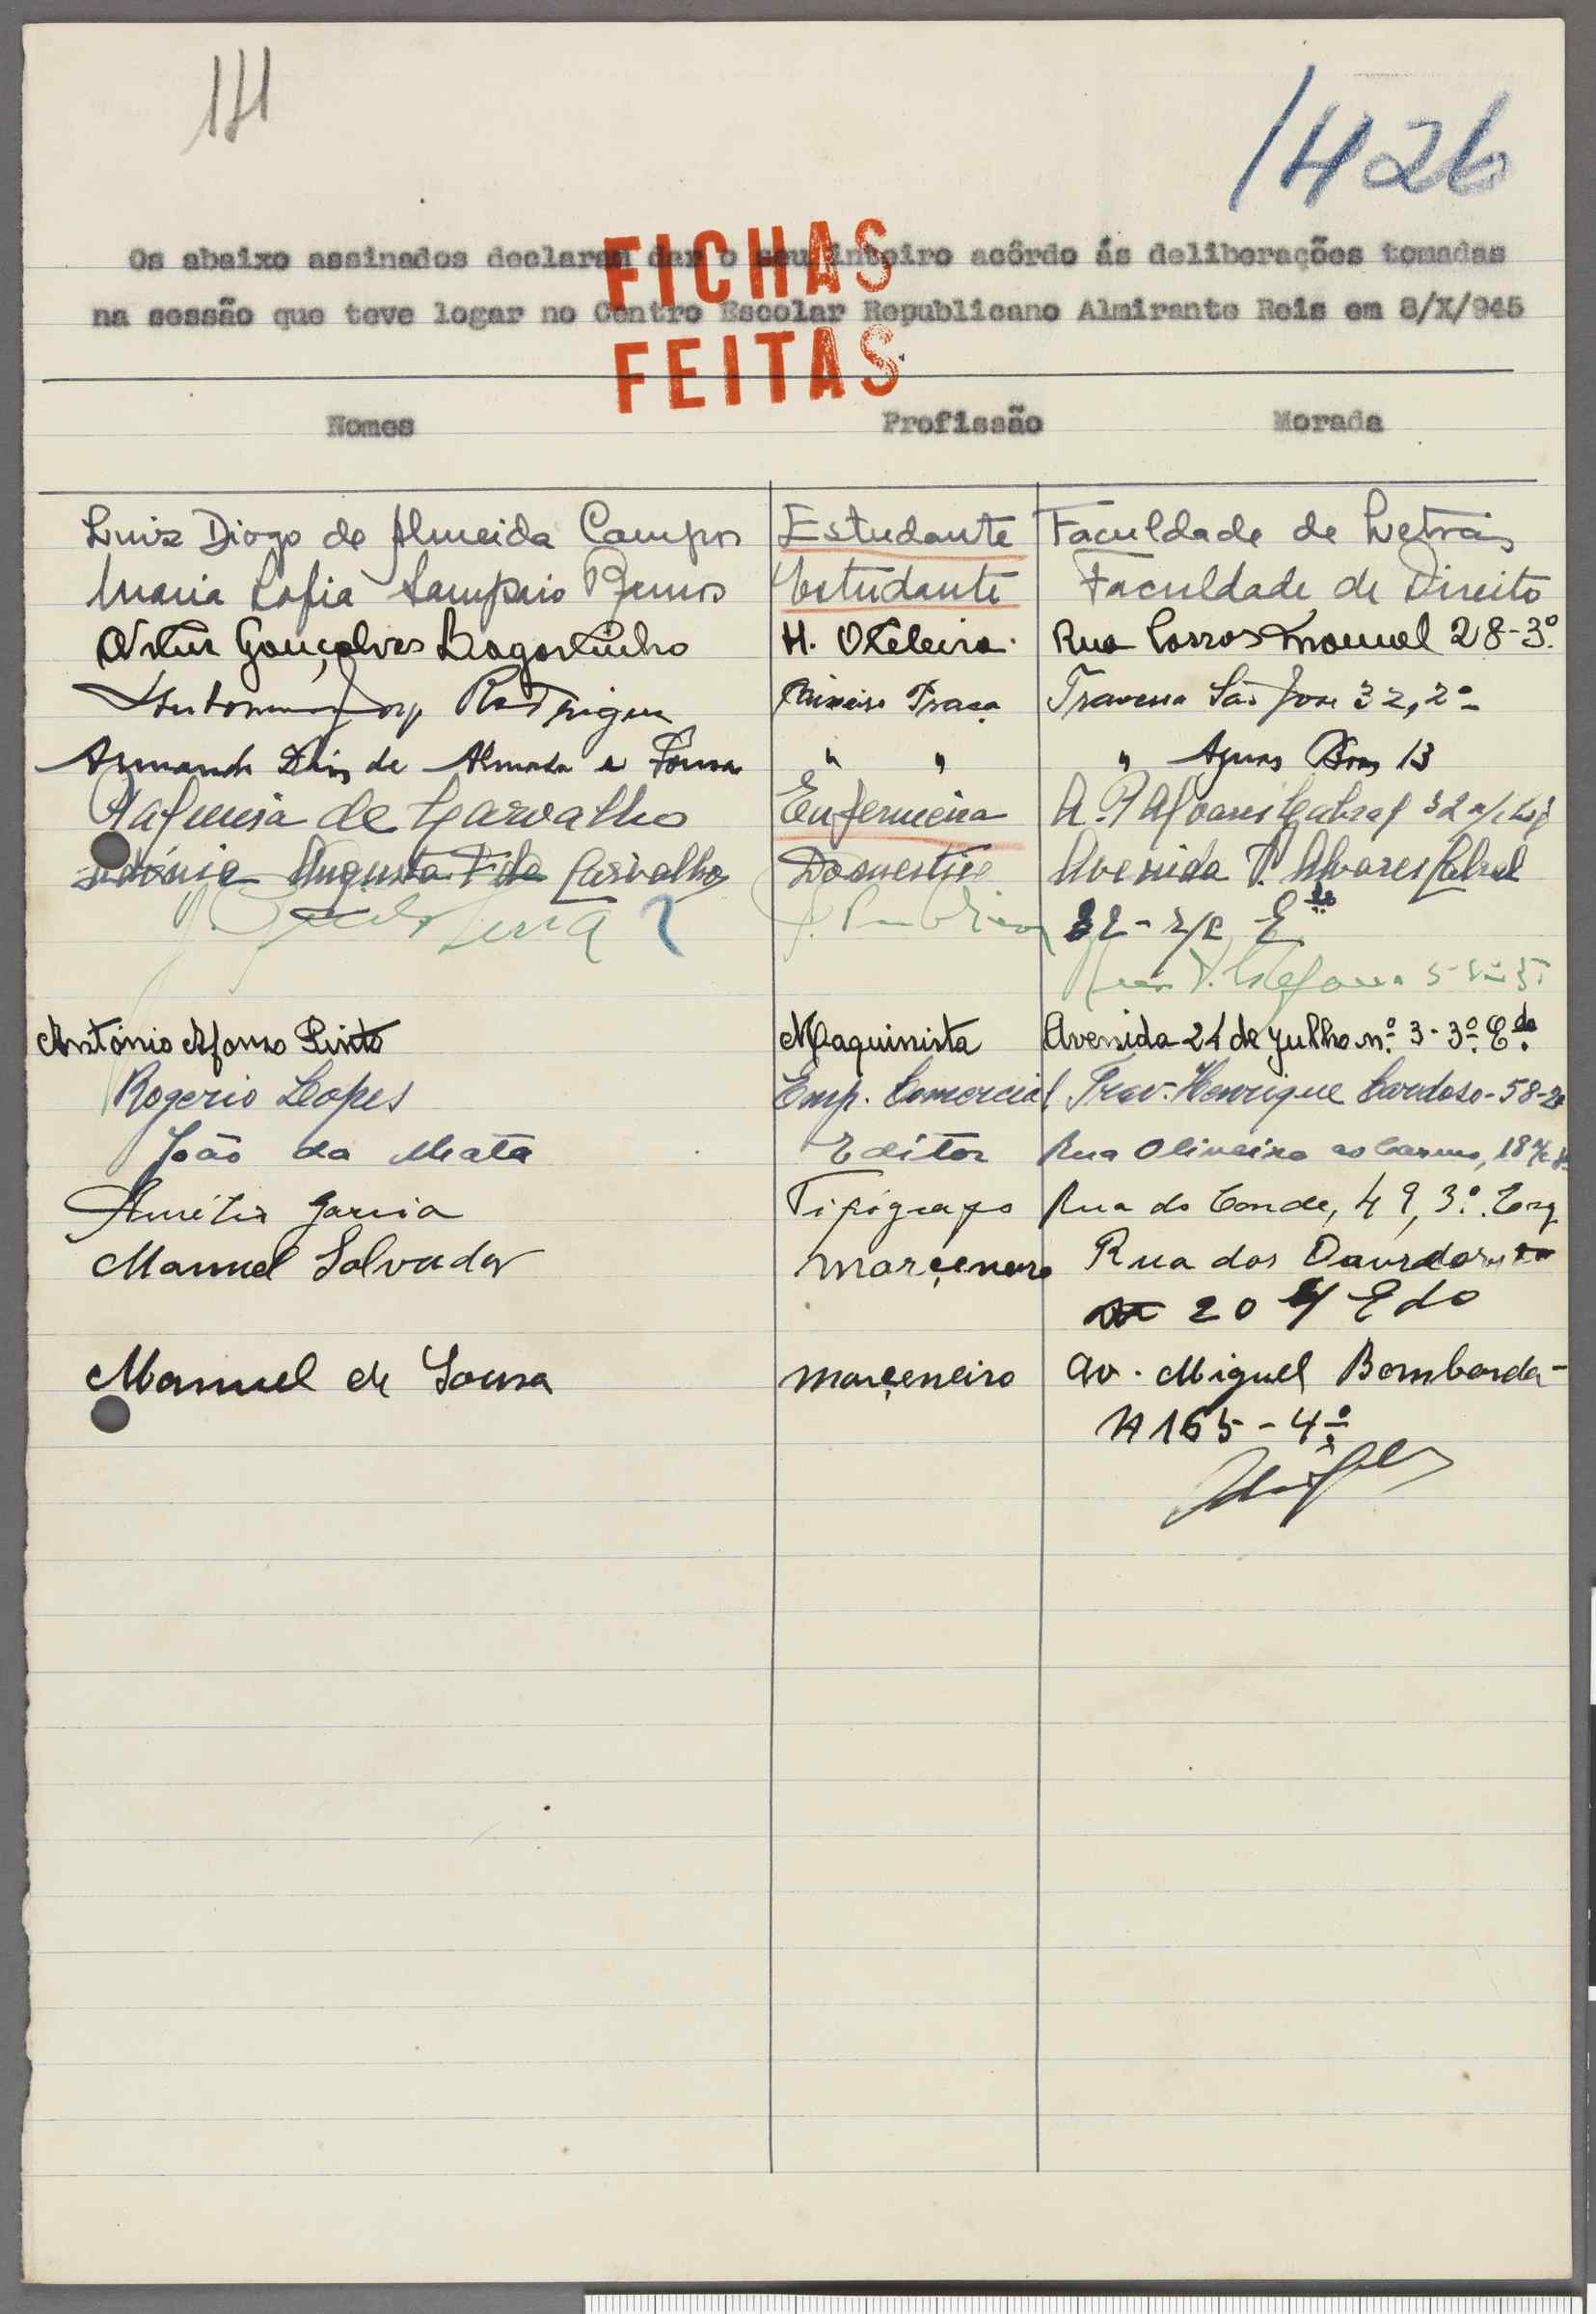 141
1426
Os abaixo assinados declaram dar o seu inteiro acôrdo ás deliberações tomadas
na sessão que teve logar no Centro Escolar Republicano Almirante Reis em 8/X/945
FICHAS
FEITAS
Nomes Profissão Morada
Luiz Diogo de Almeida Campos Estudante Faculdade de Letras
Maria Sofia Sampaio Estudante Faculdade de Direito
Artur Gonçalves Bagortinho H. Oteleira Rua Passos Manuel 28-3º.
Rodrigues Praça Travessa São José 32, 2º
Armando Dias de Almada e " " " Aguas Boas 13
de Carvalho Enfermeira A. P. Alvares Cabral 32
Augusta de Carvalho Domestica Avenida P. Alvares Cabral
32 - r/c E
António Afonso Pinto Maquinista Avenida 24 de Julho nº. 3-3º. Edo.
Rogerio Lopes Emp. Comercial Trav. Henrique Cardoso-58-2º
João da Mata Editor Rua Oliveira ao Carmo, 18
Amélia Garcia Tipógrafo Rua do Conde, 49, 3º. Esq
Manuel Salvador março̧eneiro Rua dos Douradores
20 Edo
Manuel de Sousa marçeneiro Av. Miguel Bombarda-
N 165 - 4º